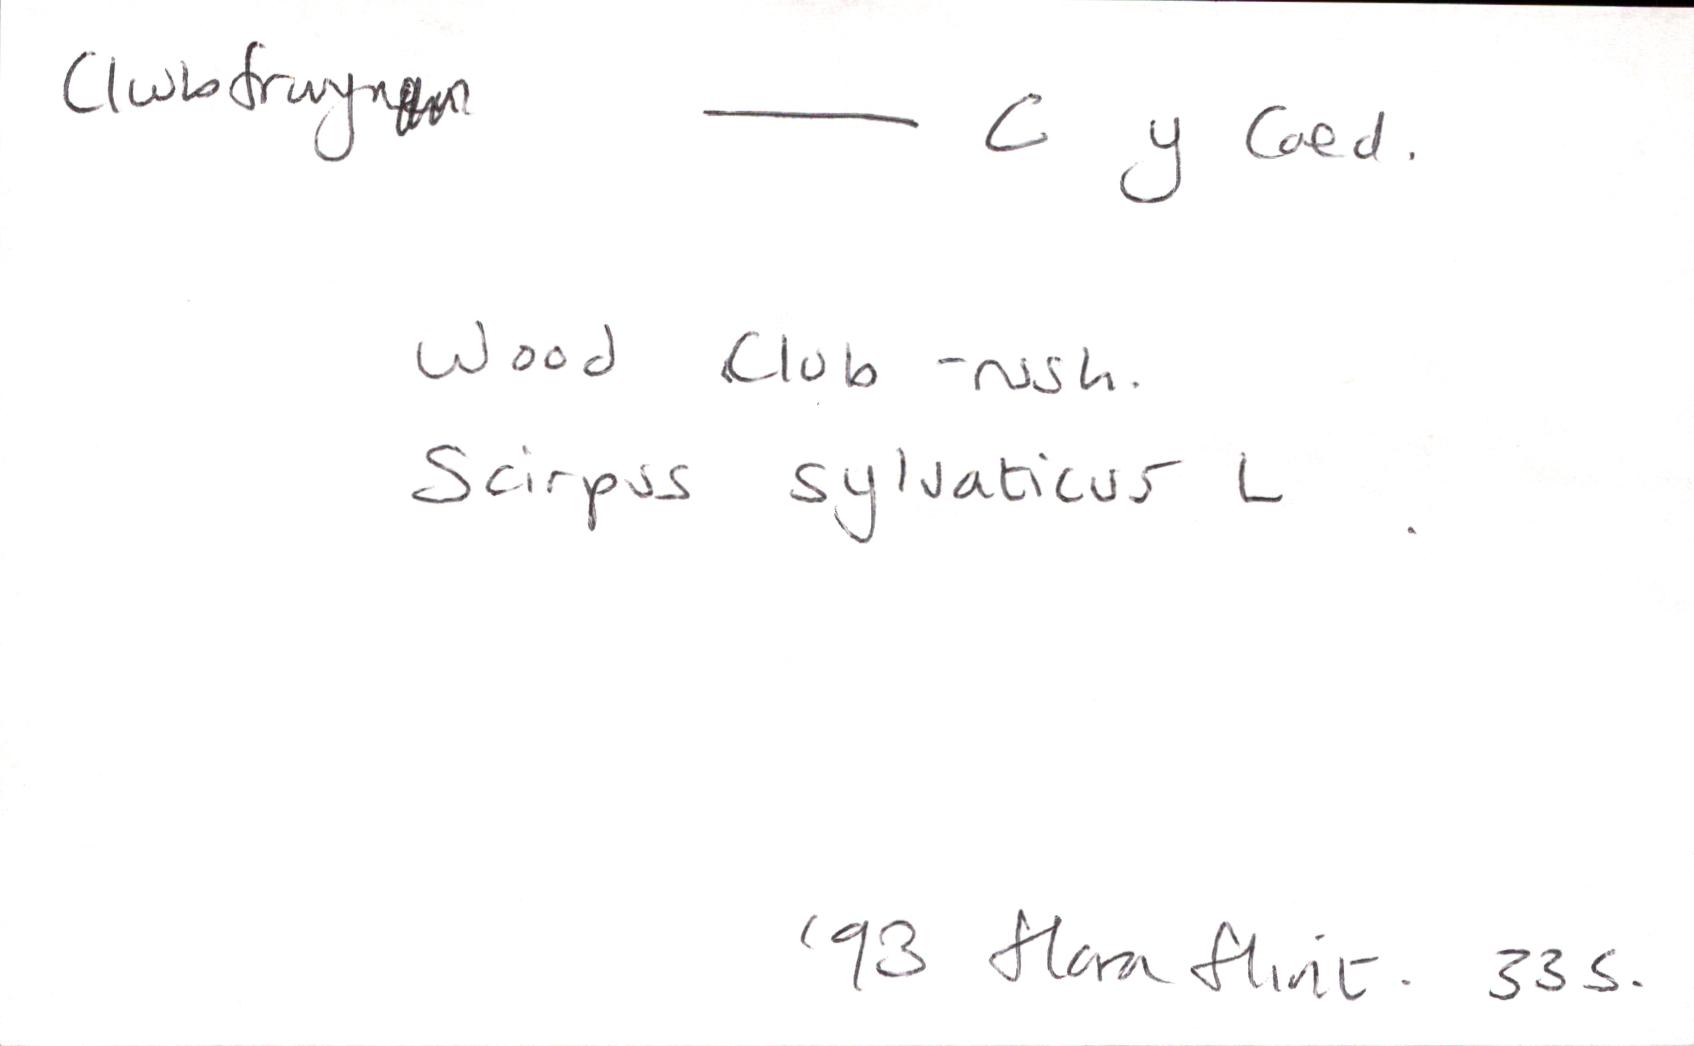 Clwbfrwynen — C y Coed.
Wood Club-rush.
Scirpus sylvaticus L.
'93 Flora Flint. 335.